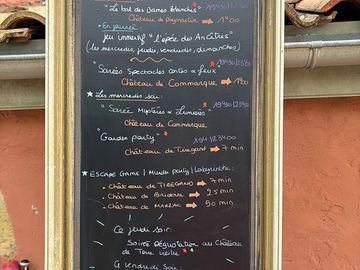 "Le bal des Dames Blanches"
Château de Puymartin → 1h00
• En journée
Jeu immersif "l'épée des Ancêtres"
(les mercredis, jeudis, vendredis, dimanches)
"Soirées Spectacles contes & feux
Château de Commarque → 1h30
★ Les mercredis soir:
"Soirée Mystères & Lumières"
Château de Commarque
"Garden party"
Château de Tiregand → 7 min
★ ESCAPE GAME / Murder party / Labyrinthe:
• Château de TIREGAND → 7 min
• Château de Bridoire → 25 min
• Château de MARZAC → 50 min
Ce jeudi soir:
Soirée Dégustation au Château
de Terre Vieille
Ce vendredi Soir: